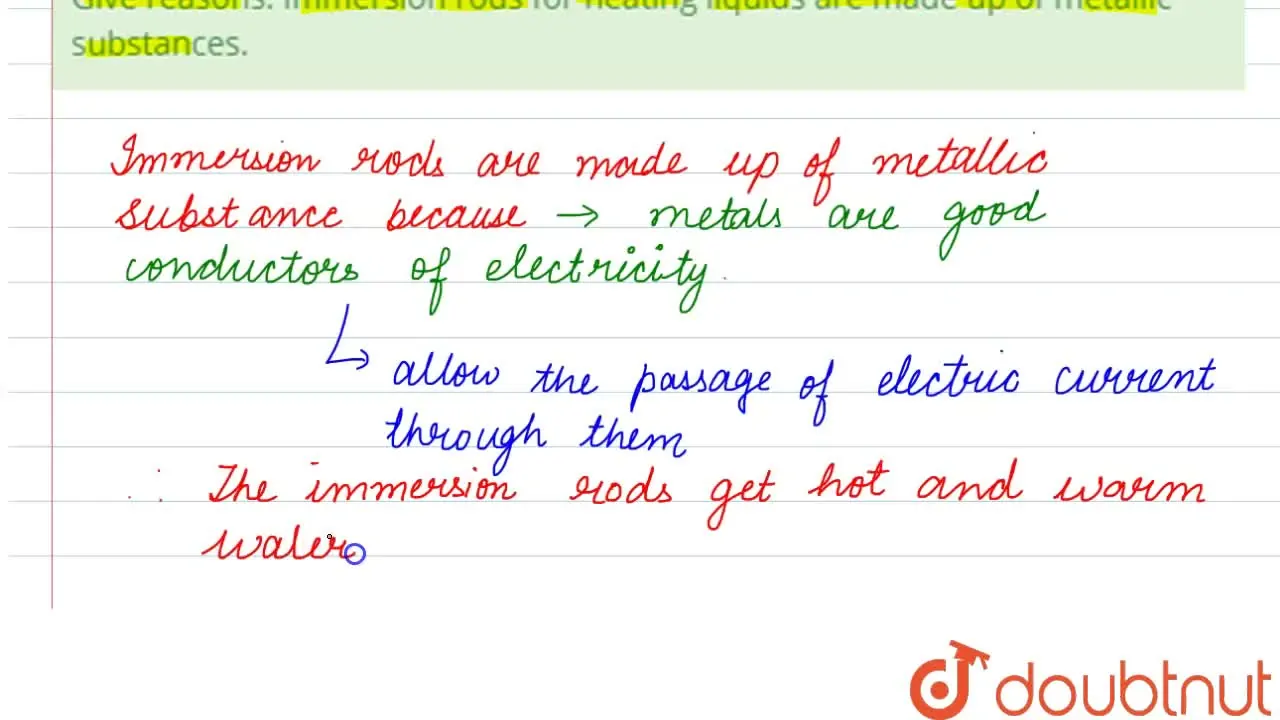 Give reasons: Immersion rods for heating liquids are made up of metallic
substances.
Immersion rods are made up of metallic
substance because → metals are good
conductors of electricity.
allow the passage of electric current
through them
∴ The immersion rods get hot and warm
water
doubtnut